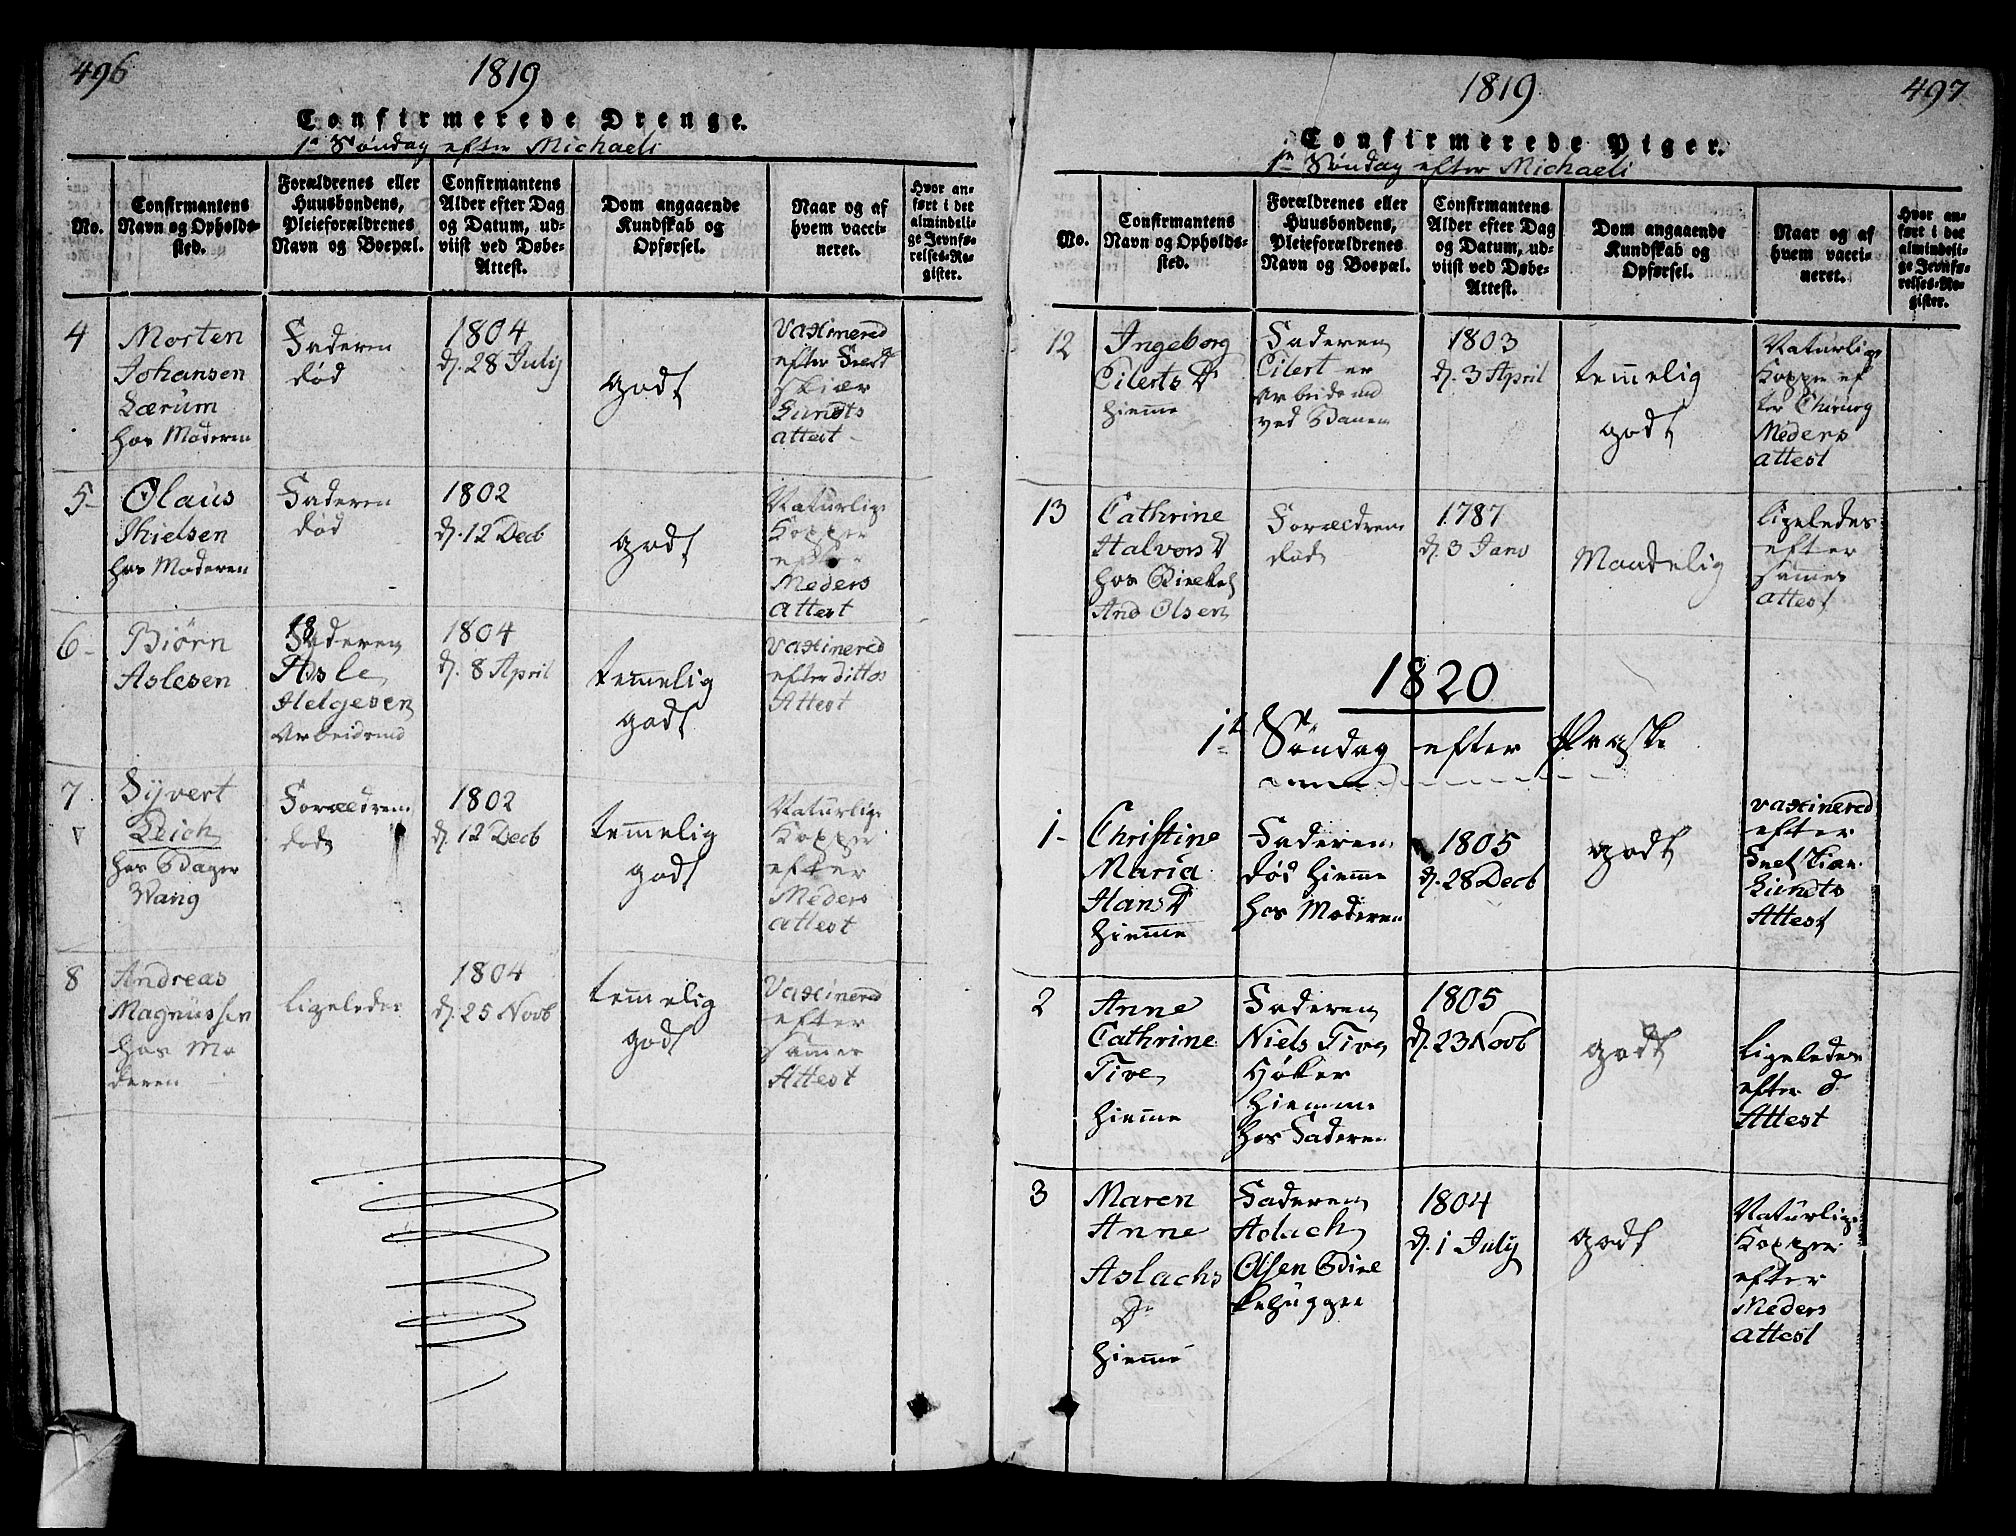 496
1819
Confirmerede Drenge.
1e Søndag efter Michaeli
No.
Confirmantens
Navn og Opholds-
sted.
Forældrenes eller
Huusbondens,
Pleieforældrenes
Navn og Boepæl.
Confirmantens
Alder efter Dag
og Datum, ud-
viist ved Døbe-
Attest.
Dom angaaende
Kundskab og
Opførsel.
Naar og af
hvem vacci-
neret.
Hvor an-
ført i det
almindeli-
ge Jevnfø-
relses-Re-
gister.
4
Morten
Johansen
Lærum
hos Moderen
Faderen
død
1804
d. 28 July
godt
Vaxinered
efter
skiær
Lundts
attest
5
Olaus
Thielsen
hos Moderen
Faderen
død
1802
d. 12 Decb
godt
Naturlige
Kopper
efter
Meders
Attest
6
Biørn
Aslesen
Faderen
Asle
Helgesen
Arbeidsmd
1804
d. 8 April
temmelig
godt
Vaxinered
efter dittos
Attest
7
Syvert
Deich
hos Bager
Wang
Forældrene
død
1802
d. 12 Decb
temmelig
godt
Naturlige
Kopper
efter
Meders
attest
8
Andreas
Magnussen
hos Mo
deren
ligeledes
1804
d. 25 Novb
temmelig
godt
Vaxinered
efter
sammes
Attest
1819
497
Confirmerede Piger.
1e Søndag efter Michaeli
No.
Confirmantens
Navn og Opholds-
sted.
Forældrenes eller
Huusbondens,
Pleieforældrenes
Navn og Boepæl.
Confirmantens
Alder efter Dag
og Datum, ud-
viist ved Døbe-
Attest.
Dom angaaende
Kundskab og
Opførsel.
Naar og af
hvem vacci-
neret.
Hvor an-
ført i det
almindeli-
ge Jevnfø-
relses-Re-
gister.
12
Ingeborg
Eilerts D
hiemme
Faderen
Eilert er
Arbeidsmd
ved Banen
1803
d. 3 April
temmelig
godt
Naturlige
Kopper ef
ter Chirurg
Meders
attest
13
Cathrine
Halvors D
hos
And Olsen
Forældrene
død
1787
d. 3 Janv
Maadelig
ligeledes
efter
sammes
attest
1820
1te Søndag efter Paaske
1
Christine
Maria
Hans D
hiemme
Faderen
død hiemme
hos Moderen
1805
d. 28 Decb
godt
vaxinered
efter
Lundts
Attest
2
Anne
Cathrine
Tive
hiemme
Faderen
Niels Tive
Høker
hiemme
hos Faderen
1805
d. 23 Novb
godt
ligeledes
efter d
Attest
3
Maren
Anne
Aslachs
Dr
hiemme
Faderen
Aslach
Olsen Blok
kehugger
1804
d. 1 July
godt
Naturlige
Kopper
efter
Meders
attest